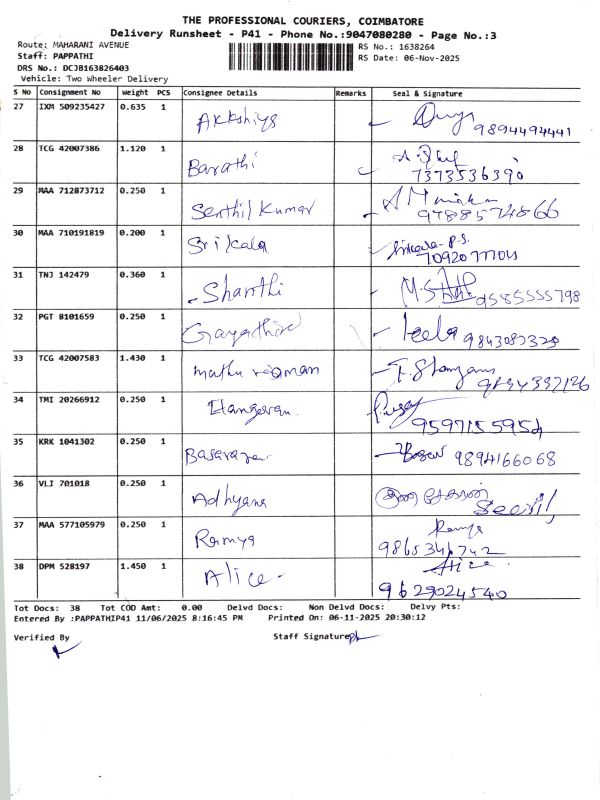 THE PROFESSIONAL COURIERS, COIMBATORE
Delivery Runsheet - P41 - Phone No.:9047080280 - Page No.:3
Route: MAHARANI AVENUE RS No.: 1638264
Staff: PAPPATHI RS Date: 06-Nov-2025
DRS No.: DCJB163826403
Vehicle: Two Wheeler Delivery
S No Consignment No Weight PCS Consignee Details Remarks Seal & Signature
27 IXM 509235427 0.635 1 Akkshiya
9894494441
28 TCG 42007386 1.120 1 Barathi
7373536390
29 MAA 712873712 0.250 1 Senthil Kumar
9788574866
30 MAA 710191819 0.200 1 Srikala
31 TNJ 142479 0.360 1 Shanthi
9585555798
32 PGT 8101659 0.250 1 leela 9843083329
33 TCG 42007583 1.430 1
34 TMI 20266912 0.250 1
9597155954
35 KRK 1041302 0.250 1 9894166068
36 VLJ 701018 0.250 1 Adhyana
37 MAA 577105979 0.250 1 Ramya Ramya
9865346742
38 DPM 528197 1.450 1 Alice Alice
9629024540
Tot Docs: 38 Tot COD Amt: 0.00 Delvd Docs: Non Delvd Docs: Delvy Pts:
Entered By :PAPPATHIP41 11/06/2025 8:16:45 PM Printed On: 06-11-2025 20:30:12
Verified By Staff Signature